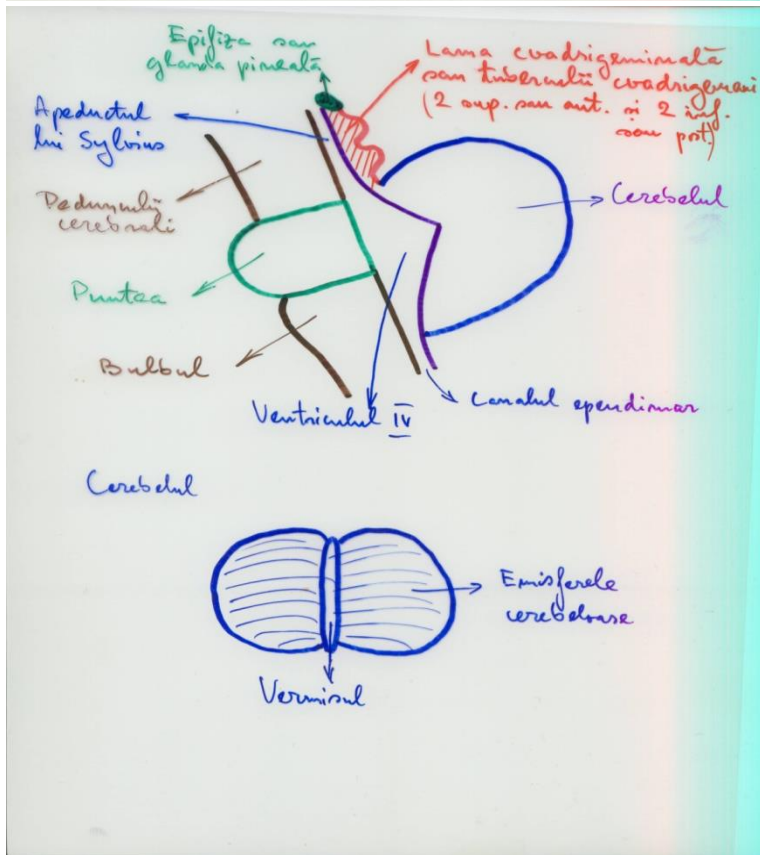 Epifiza sau
glanda pineală
Lama cvadrigeminată
sau tuberculii cvadrigemeni
(2 sup. sau ant. și 2 inf.
sau post)
Apeductul
lui Sylvius
Pedunculii
cerebrali
Cerebelul
Puntea
Bulbul
Ventriculul IV
Canalul ependimar
Cerebelul
Emisferele
cerebeloase
Vermisul